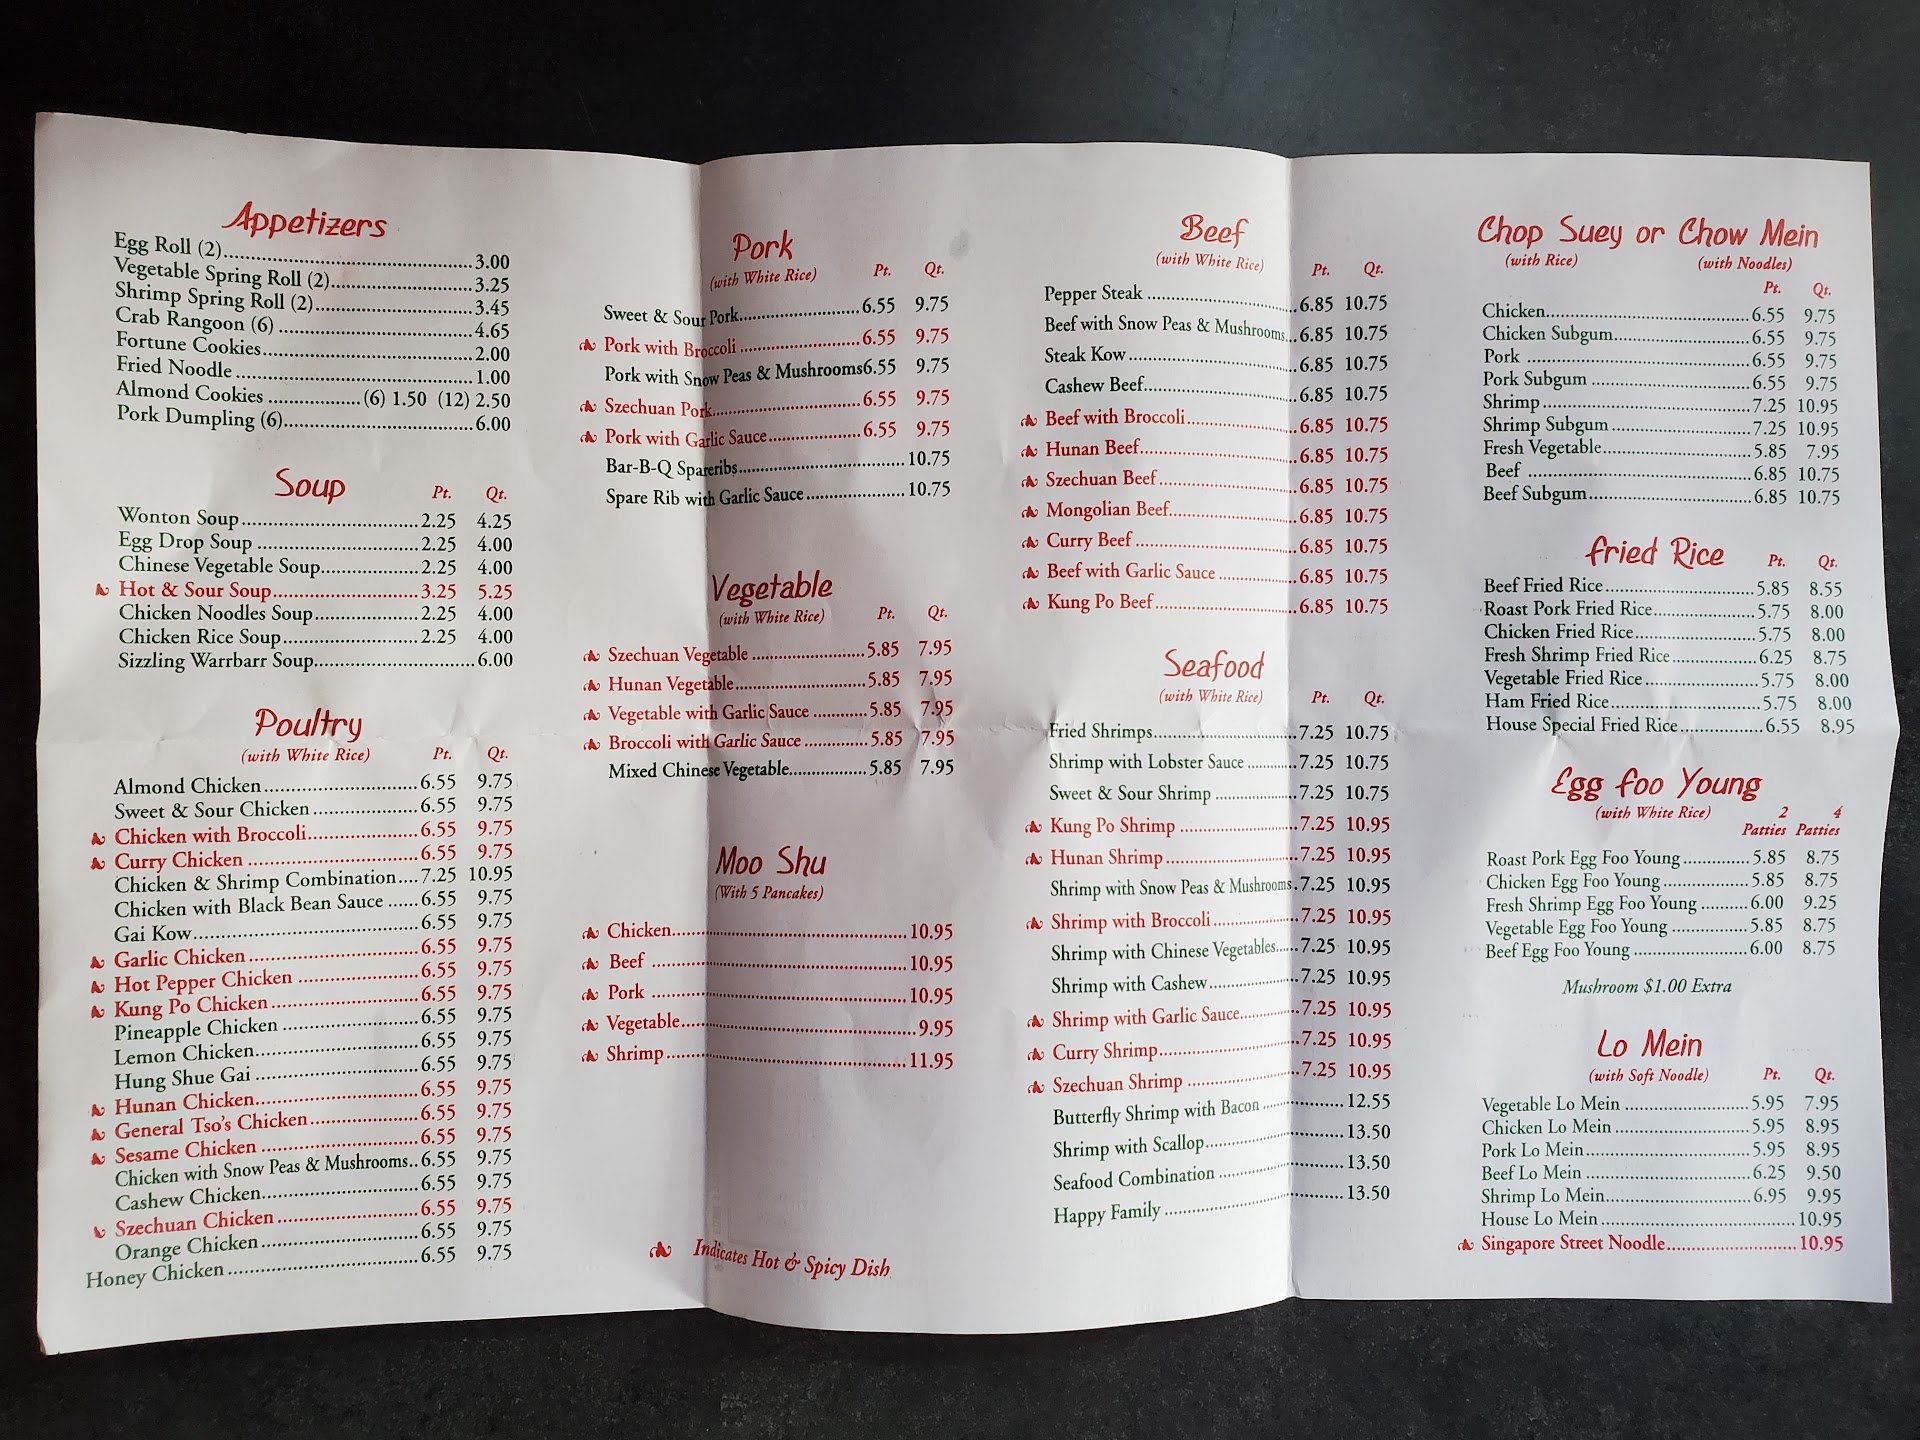 Appetizers
Egg Roll (2) 3.00
Vegetable Spring Roll (2) 3.25
Shrimp Spring Roll (2) 3.45
Crab Rangoon (6) 4.65
Fortune Cookies 2.00
Fried Noodle 1.00
Almond Cookies (6) 1.50 (12) 2.50
Pork Dumpling (6) 6.00
Soup Pt. Qt.
Wonton Soup 2.25 4.25
Egg Drop Soup 2.25 4.00
Chinese Vegetable Soup 2.25 4.00
Hot & Sour Soup 3.25 5.25
Chicken Noodles Soup 2.25 4.00
Chicken Rice Soup 2.25 4.00
Sizzling Warrbarr Soup 6.00
Poultry
(with White Rice) Pt. Qt.
Almond Chicken 6.55 9.75
Sweet & Sour Chicken 6.55 9.75
Chicken with Broccoli 6.55 9.75
Curry Chicken 6.55 9.75
Chicken & Shrimp Combination 7.25 10.95
Chicken with Black Bean Sauce 6.55 9.75
Gai Kow 6.55 9.75
Garlic Chicken 6.55 9.75
Hot Pepper Chicken 6.55 9.75
Kung Po Chicken 6.55 9.75
Pineapple Chicken 6.55 9.75
Lemon Chicken 6.55 9.75
Hung Shue Gai 6.55 9.75
Hunan Chicken 6.55 9.75
General Tso's Chicken 6.55 9.75
Sesame Chicken 6.55 9.75
Chicken with Snow Peas & Mushrooms 6.55 9.75
Cashew Chicken 6.55 9.75
Szechuan Chicken 6.55 9.75
Orange Chicken 6.55 9.75
Honey Chicken 6.55 9.75
Pork
(with White Rice) Pt. Qt.
Sweet & Sour Pork 6.55 9.75
Pork with Broccoli 6.55 9.75
Pork with Snow Peas & Mushrooms 6.55 9.75
Szechuan Pork 6.55 9.75
Pork with Garlic Sauce 6.55 9.75
Bar-B-Q Spareribs 10.75
Spare Rib with Garlic Sauce 10.75
Vegetable
(with White Rice) Pt. Qt.
Szechuan Vegetable 5.85 7.95
Hunan Vegetable 5.85 7.95
Vegetable with Garlic Sauce 5.85 7.95
Broccoli with Garlic Sauce 5.85 7.95
Mixed Chinese Vegetable 5.85 7.95
Moo Shu
(With 5 Pancakes)
Chicken 10.95
Beef 10.95
Pork 10.95
Vegetable 9.95
Shrimp 11.95
Indicates Hot & Spicy Dish
Beef
(with White Rice) Pt. Qt.
Pepper Steak 6.85 10.75
Beef with Snow Peas & Mushrooms 6.85 10.75
Steak Kow 6.85 10.75
Cashew Beef 6.85 10.75
Beef with Broccoli 6.85 10.75
Hunan Beef 6.85 10.75
Szechuan Beef 6.85 10.75
Mongolian Beef 6.85 10.75
Curry Beef 6.85 10.75
Beef with Garlic Sauce 6.85 10.75
Kung Po Beef 6.85 10.75
Seafood
(with White Rice) Pt. Qt.
Fried Shrimps 7.25 10.75
Shrimp with Lobster Sauce 7.25 10.75
Sweet & Sour Shrimp 7.25 10.75
Kung Po Shrimp 7.25 10.95
Hunan Shrimp 7.25 10.95
Shrimp with Snow Peas & Mushrooms 7.25 10.95
Shrimp with Broccoli 7.25 10.95
Shrimp with Chinese Vegetables 7.25 10.95
Shrimp with Cashew 7.25 10.95
Shrimp with Garlic Sauce 7.25 10.95
Curry Shrimp 7.25 10.95
Szechuan Shrimp 7.25 10.95
Butterfly Shrimp with Bacon 12.55
Shrimp with Scallop 13.50
Seafood Combination 13.50
Happy Family 13.50
Chop Suey or Chow Mein
(with Rice) (with Noodles)
Pt. Qt.
Chicken 6.55 9.75
Chicken Subgum 6.55 9.75
Pork 6.55 9.75
Pork Subgum 6.55 9.75
Shrimp 7.25 10.95
Shrimp Subgum 7.25 10.95
Fresh Vegetable 5.85 7.95
Beef 6.85 10.75
Beef Subgum 6.85 10.75
Fried Rice Pt. Qt.
Beef Fried Rice 5.85 8.55
Roast Pork Fried Rice 5.75 8.00
Chicken Fried Rice 5.75 8.00
Fresh Shrimp Fried Rice 6.25 8.75
Vegetable Fried Rice 5.75 8.00
Ham Fried Rice 5.75 8.00
House Special Fried Rice 6.55 8.95
Egg Foo Young
(with White Rice) 2 4
Patties Patties
Roast Pork Egg Foo Young 5.85 8.75
Chicken Egg Foo Young 5.85 8.75
Fresh Shrimp Egg Foo Young 6.00 9.25
Vegetable Egg Foo Young 5.85 8.75
Beef Egg Foo Young 6.00 8.75
Mushroom $1.00 Extra
Lo Mein
(with Soft Noodle) Pt. Qt.
Vegetable Lo Mein 5.95 7.95
Chicken Lo Mein 5.95 8.95
Pork Lo Mein 5.95 8.95
Beef Lo Mein 6.25 9.50
Shrimp Lo Mein 6.95 9.95
House Lo Mein 10.95
Singapore Street Noodle 10.95